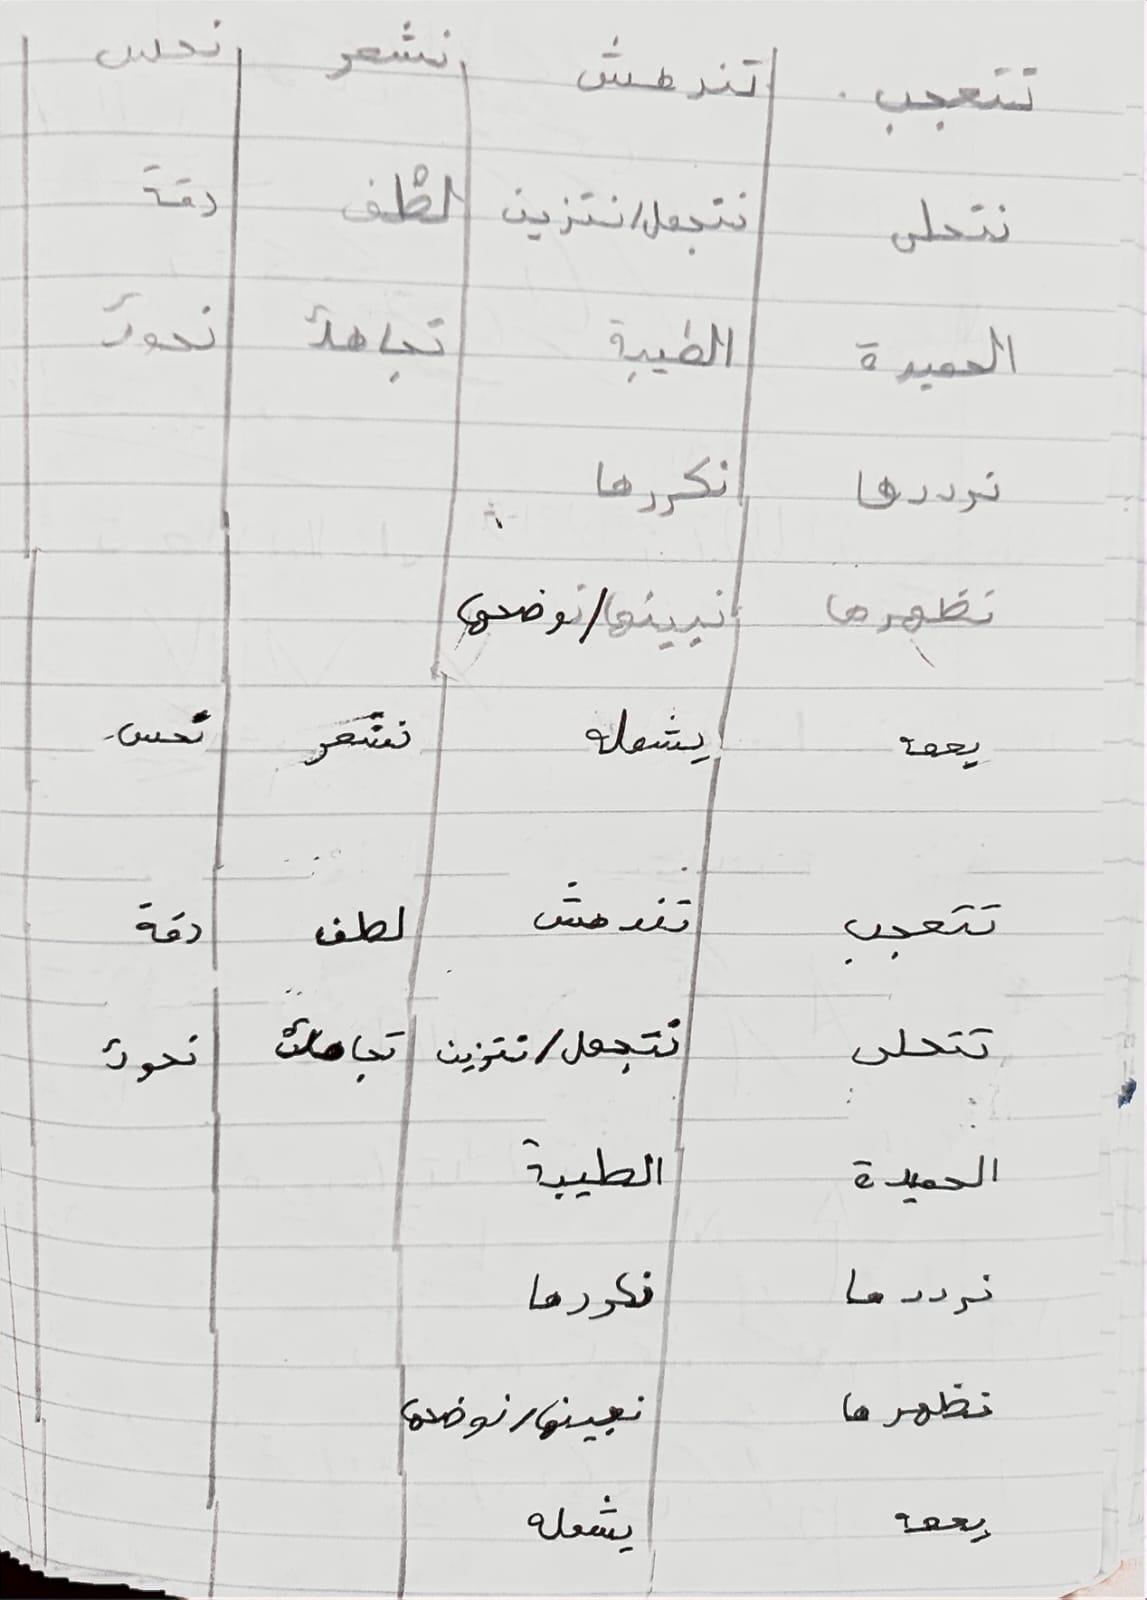 تتعجب تندهش نشعر نحس
نتحلى نتجمل/نتزين لطف دقة
الحميدة الطيبة تجاهك نحوك
نرددها نكررها
نظهرها نبينها/نوضحها
يعمه يشمله نشعر نحس
تتعجب تندهش لطف دقة
نتحلى نتجمل/نتزين تجاهك نحوك
الحميدة الطيبة
نرددها نكررها
نظهرها نبينها/نوضحها
يعمه يشمله